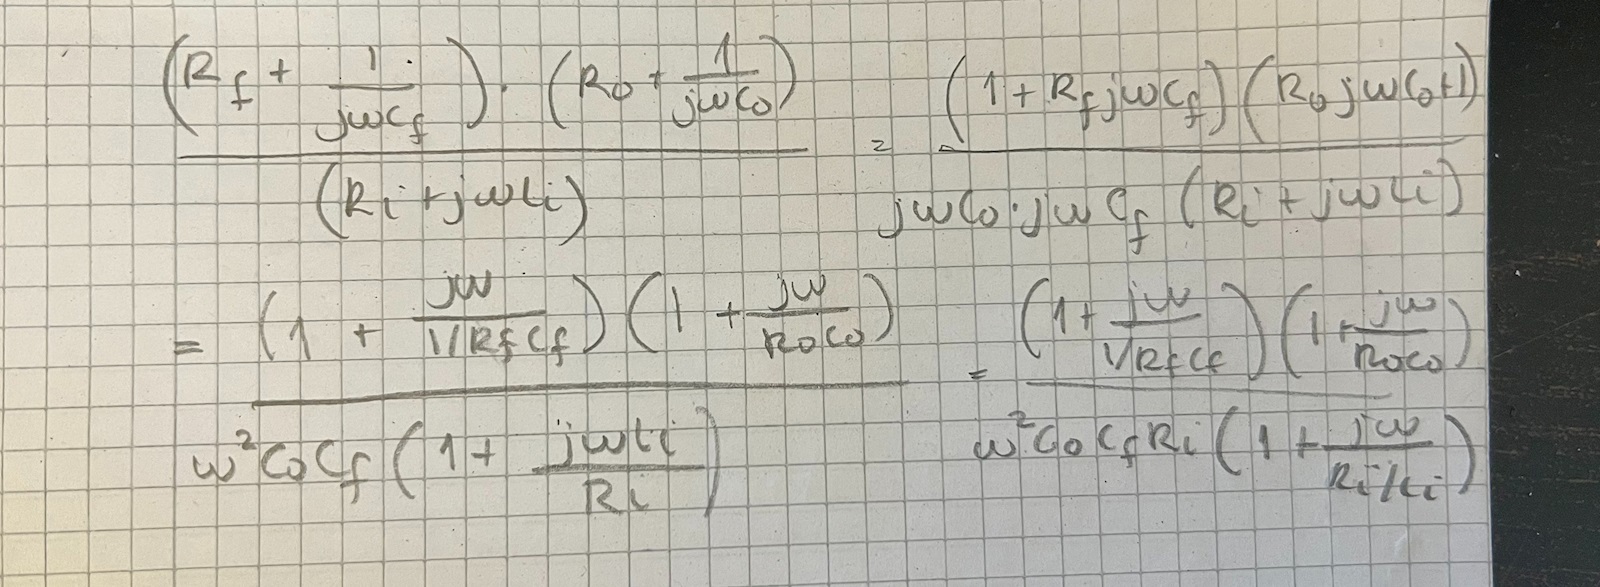 (R_f + 1/(jωC_f)) · (R_o + 1/(jωC_o)) / (R_i + jωL_i) = (1 + R_f jωC_f)(R_o jωC_o + 1) / (jωC_o · jωC_f (R_i + jωL_i))
= (1 + jω/(1/R_f C_f))(1 + jω/(R_o C_o)) / (ω² C_o C_f (1 + jωL_i/R_i)) = (1 + jω/(1/R_f C_f))(1 + jω/(R_o C_o)) / (ω² C_o C_f R_i (1 + jω/(R_i/L_i)))